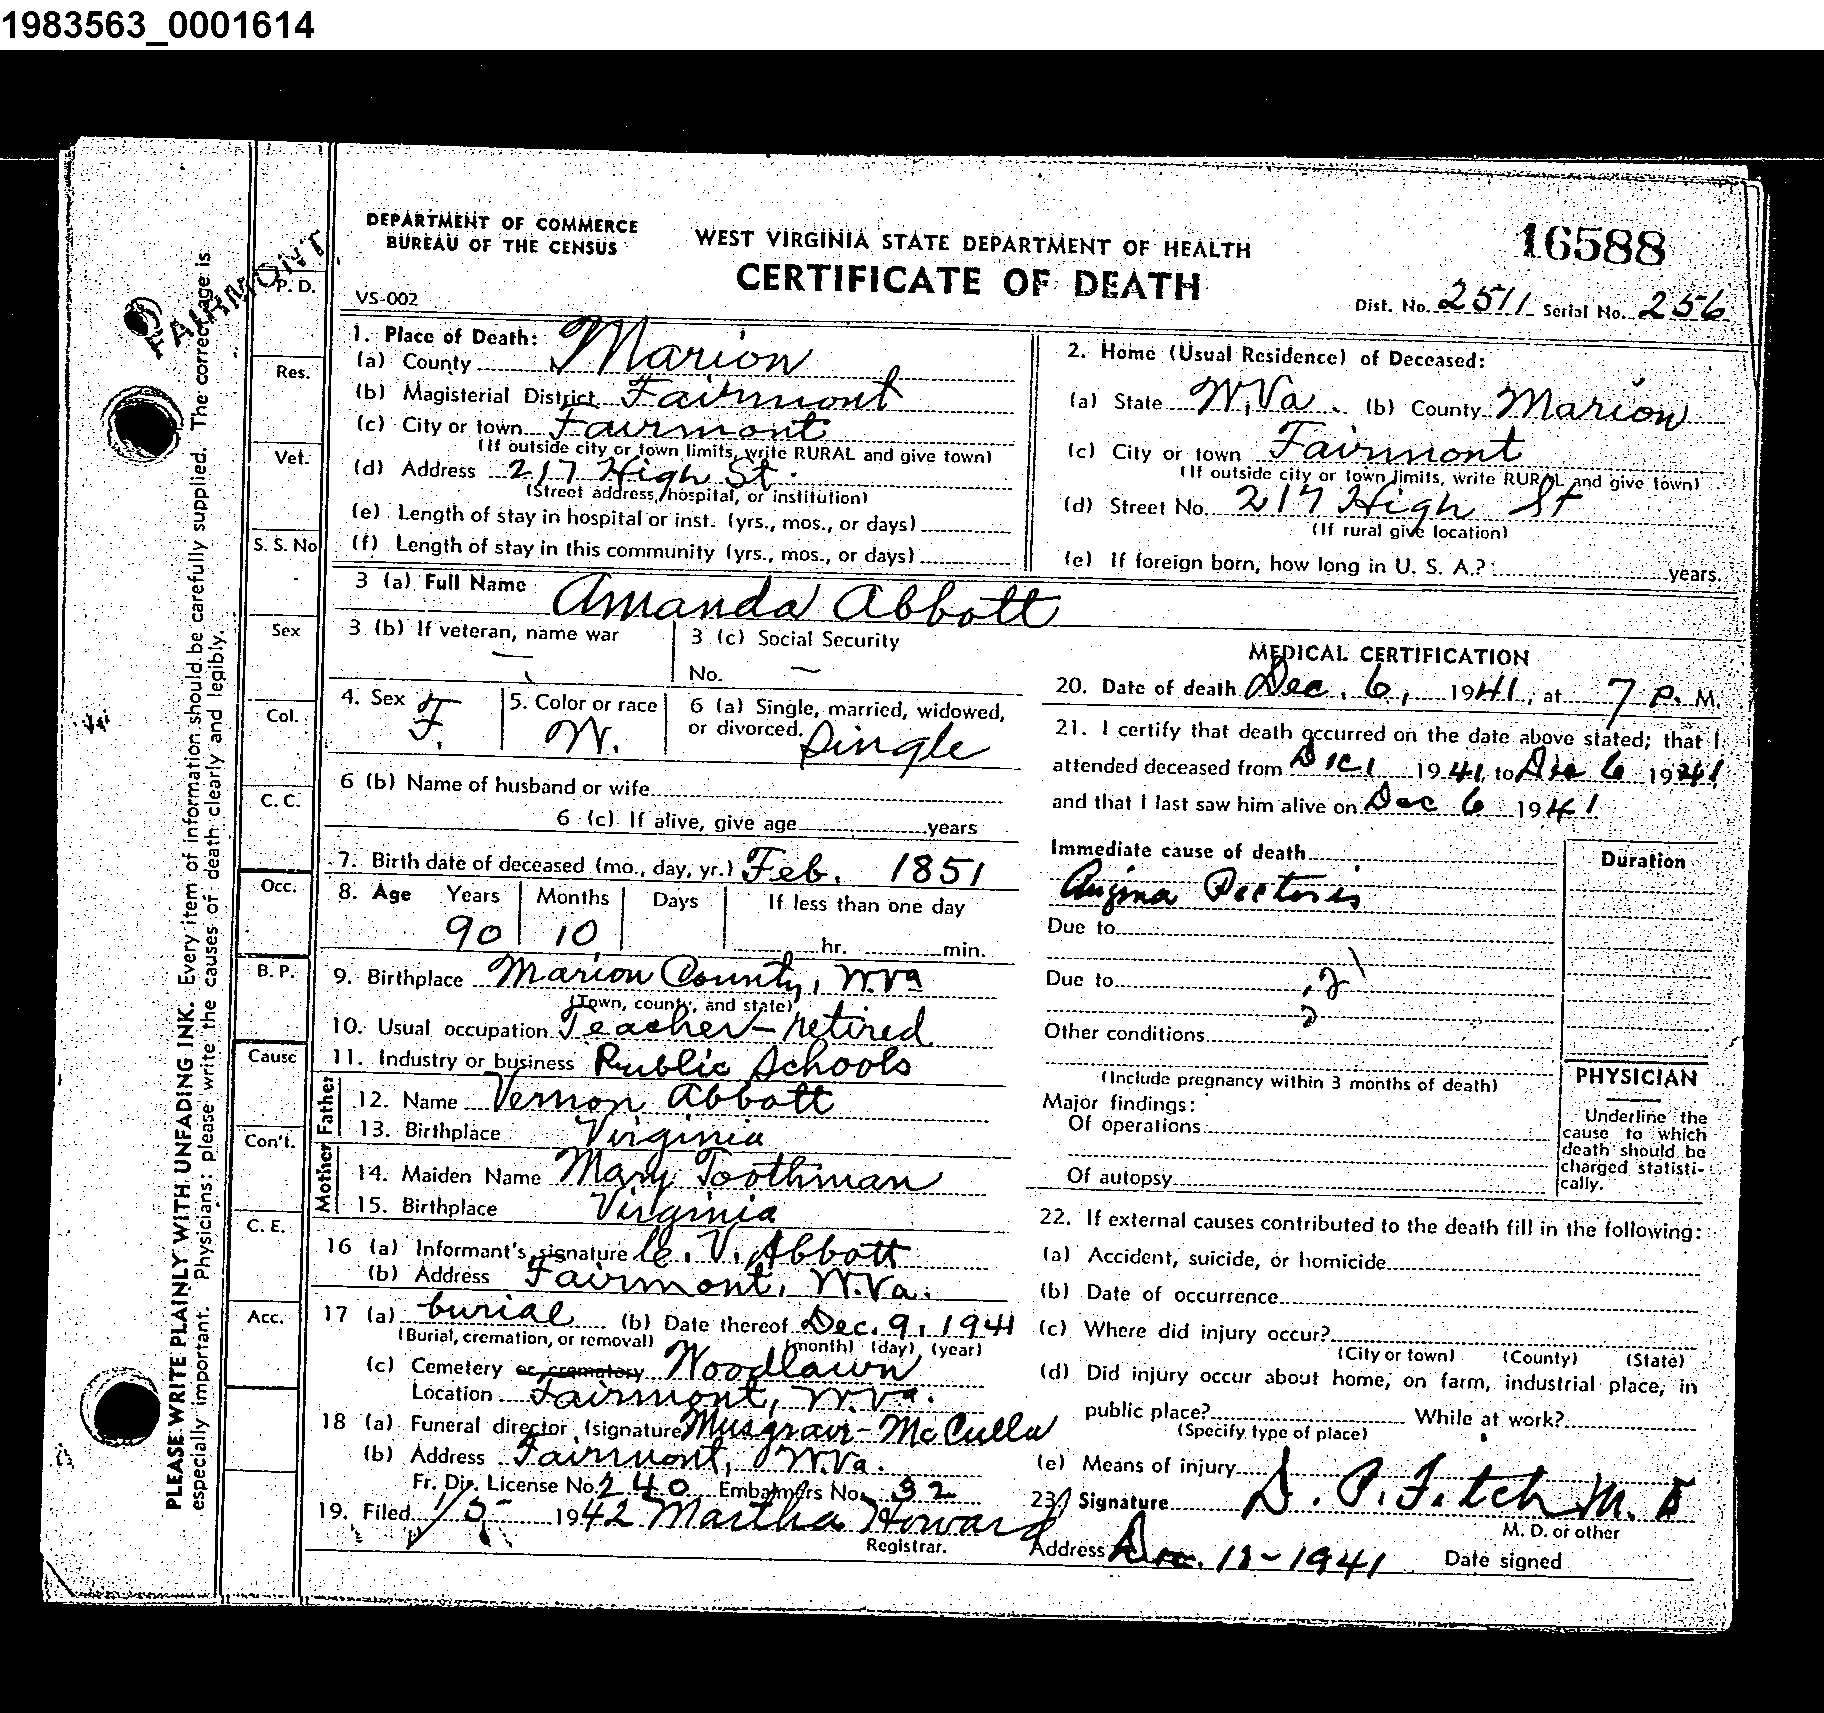 1983563_0001614
DEPARTMENT OF COMMERCE
BUREAU OF THE CENSUS
WEST VIRGINIA STATE DEPARTMENT OF HEALTH
CERTIFICATE OF DEATH
16588
VS-002
Dist. No. 2511 Serial No. 256
FAIRMONT
P. D.
Res.
Vet.
S. S. No
Sex
Col.
C. C.
Occ.
B. P.
Cause
Con't.
C. E.
Acc.
PLEASE WRITE PLAINLY WITH UNFADING INK. Every item of information should be carefully supplied. The correct age is
especially important. Physicians: please write the causes of death clearly and legibly.
1. Place of Death:
(a) County Marion
(b) Magisterial District Fairmont
(c) City or town Fairmont
(If outside city or town limits, write RURAL and give town)
(d) Address 217 High St.
(Street address, hospital, or institution)
(e) Length of stay in hospital or inst. (yrs., mos., or days)
(f) Length of stay in this community (yrs., mos., or days)
2. Home (Usual Residence) of Deceased:
(a) State W.Va. (b) County Marion
(c) City or town Fairmont
(If outside city or town limits, write RURAL and give town)
(d) Street No. 217 High St
(If rural give location)
(e) If foreign born, how long in U. S. A.? years.
3 (a) Full Name Amanda Abbott
3 (b) If veteran, name war —
3 (c) Social Security
No. —
4. Sex F.
5. Color or race W.
6 (a) Single, married, widowed,
or divorced. Single
6 (b) Name of husband or wife
6 (c) If alive, give age years
7. Birth date of deceased (mo., day, yr.) Feb. 1851
8. Age Years Months Days If less than one day
90 10 hr. min.
9. Birthplace Marion County, W.Va
(Town, county, and state)
10. Usual occupation Teacher - retired
11. Industry or business Public Schools
Father
12. Name Vernon Abbott
13. Birthplace Virginia
Mother
14. Maiden Name Mary Toothman
15. Birthplace Virginia
16 (a) Informant's signature C. V. Abbott
(b) Address Fairmont, W.Va.
17 (a) burial (b) Date thereof Dec. 9, 1941
(Burial, cremation, or removal) (month) (day) (year)
(c) Cemetery or crematory Woodlawn
Location Fairmont, W.Va.
18 (a) Funeral director (signature Musgrave-McCulla
(b) Address Fairmont, W.Va.
Fr. Dir. License No. 240 Embalmers No. 32
19. Filed 1/5 1942 Martha Howard
Registrar.
MEDICAL CERTIFICATION
20. Date of death Dec. 6, 1941, at 7 P. M.
21. I certify that death occurred on the date above stated; that I
attended deceased from Dec 1 1941, to Dec 6 1941
and that I last saw him alive on Dec 6 1941
Immediate cause of death
Angina Pectoris
Duration
Due to
Due to
Other conditions
(Include pregnancy within 3 months of death)
Major findings:
Of operations
Of autopsy
PHYSICIAN
Underline the
cause to which
death should be
charged statisti-
cally.
22. If external causes contributed to the death fill in the following:
(a) Accident, suicide, or homicide
(b) Date of occurrence
(c) Where did injury occur?
(City or town) (County) (State)
(d) Did injury occur about home, on farm, industrial place, in
public place? While at work?
(Specify type of place)
(e) Means of injury
23. Signature D. P. Fitch M. D
M. D. or other
Address Dec. 18-1941 Date signed